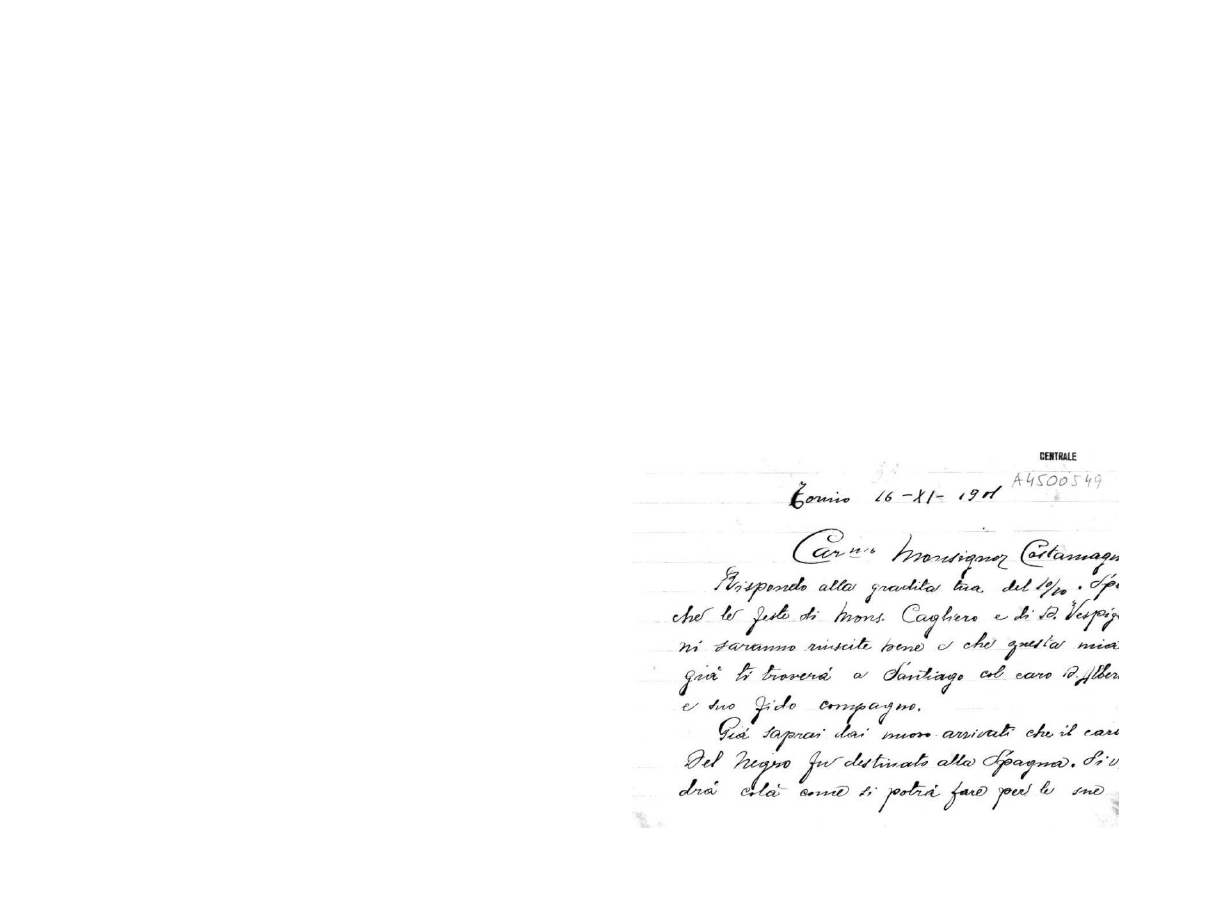 CENTRALE
A4500549
Torino 16-XI-1901
Car.mo Monsignor Costamagn
Rispondo alla gradita tua del 10/10. Spe
che le feste di Mons. Cagliero e di D. Vespig
ni saranno riuscite bene e che questa mia
già ti troverà a Santiago col caro D. Alber
e suo fido compagno.
Già saprai dai nuovi arrivati che il caro
Del Negro fu destinato alla Spagna. Si v
drà colà come si potrà fare per le sue